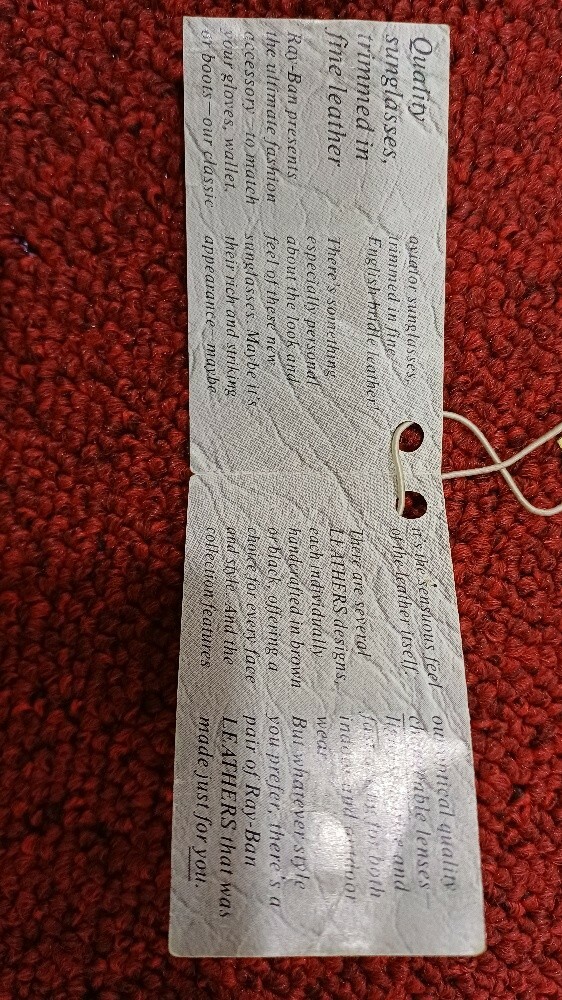 Quality
sunglasses,
trimmed in
fine leather
Ray-Ban presents
the ultimate fashion
accessory—to match
your gloves, wallet,
or boots—our classic
aviator sunglasses,
trimmed in fine
English bridle leather.
There's something
especially personal
about the look and
feel of these new
sunglasses. Maybe it's
their rich and striking
appearance—maybe
it's the sensuous feel
of the leather itself.
There are several
LEATHERS designs,
each individually
handcrafted in brown
or black, offering a
choice for every face
and style. And the
collection features
our optical quality
changeable lenses—
and
both
indoor and outdoor
wear
But whatever style
you prefer, there's a
pair of Ray-Ban
LEATHERS that was
made just for you.